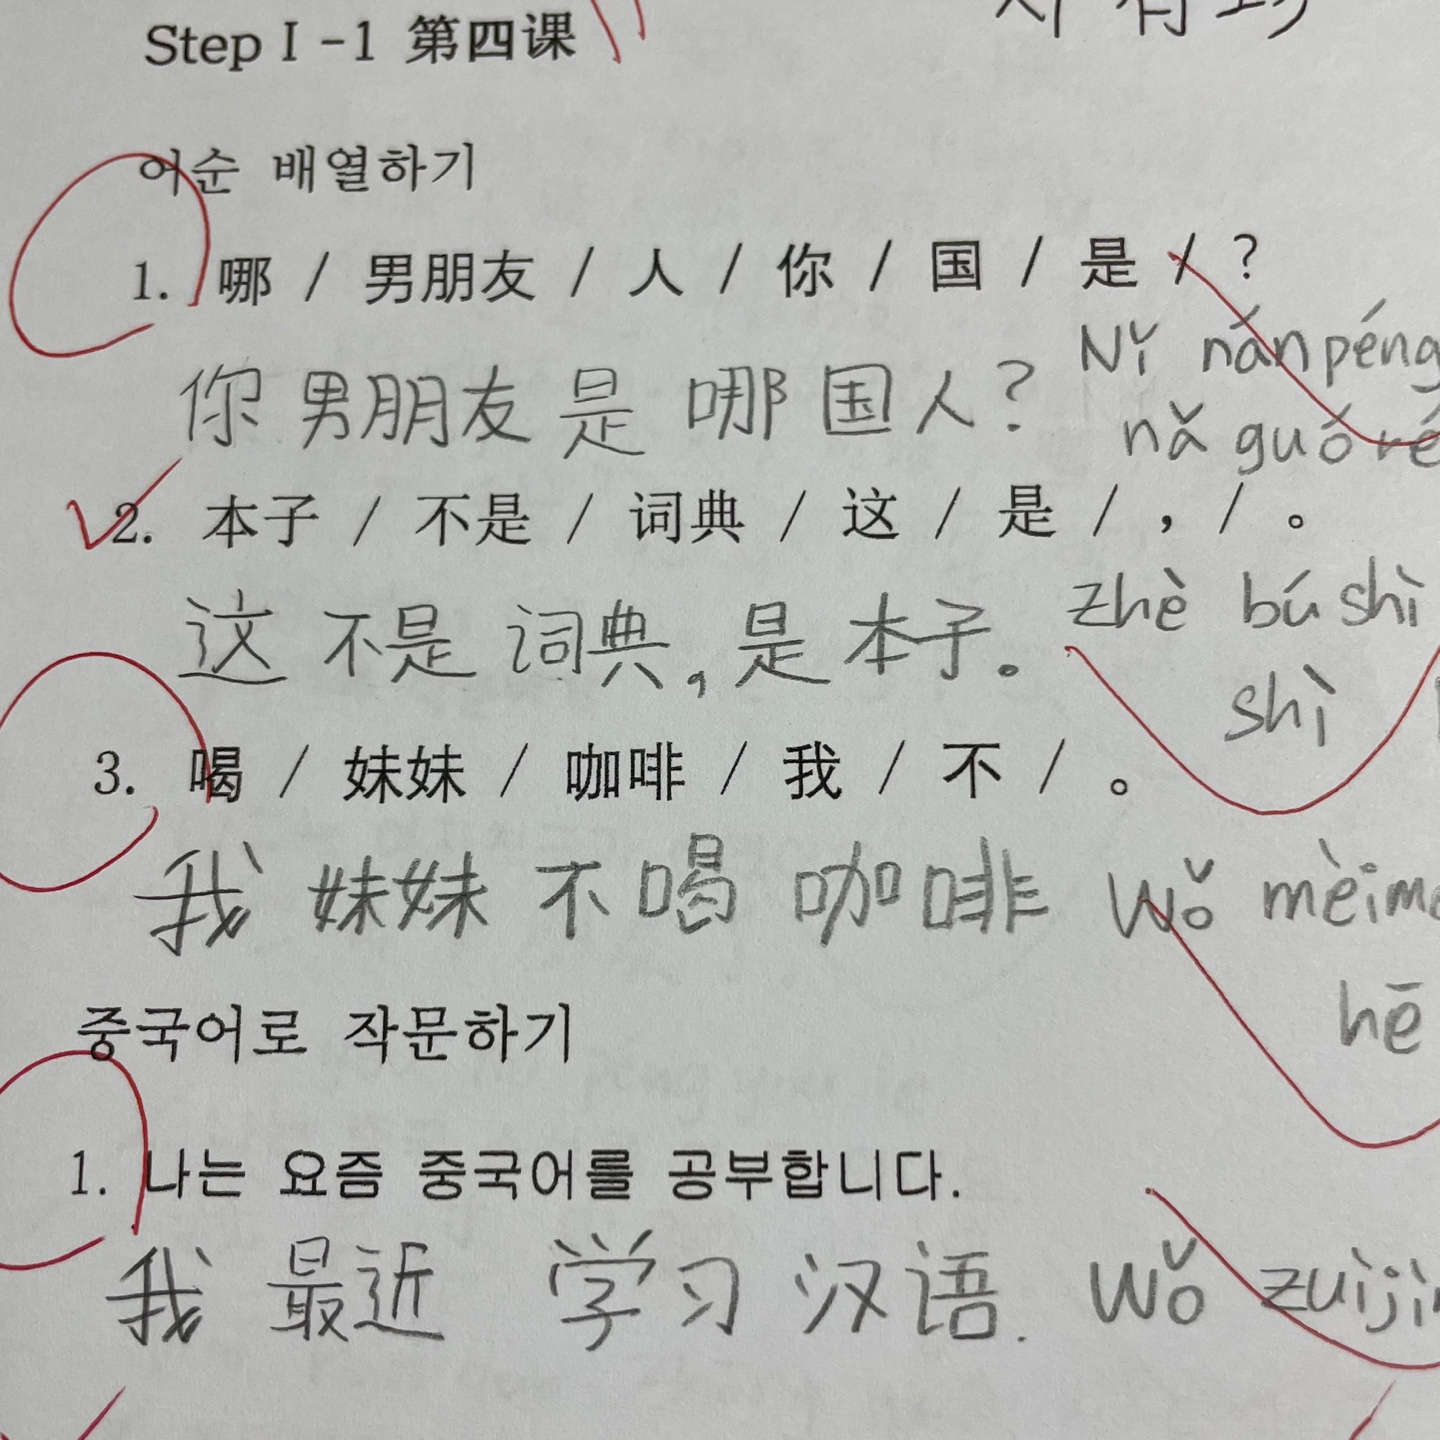 Step I -1 第四课
어순 배열하기
1. 哪 / 男朋友 / 人 / 你 / 国 / 是 / ?
你 男朋友 是 哪 国 人? Nǐ nánpéng
nǎ guó ré
2. 本子 / 不是 / 词典 / 这 / 是 / , / 。
这 不是 词典, 是 本子。 zhè bú shì
shì
3. 喝 / 妹妹 / 咖啡 / 我 / 不 / 。
我 妹妹 不 喝 咖啡 Wǒ mèime
hē
중국어로 작문하기
1. 나는 요즘 중국어를 공부합니다.
我 最近 学习 汉语. Wǒ zuìjì